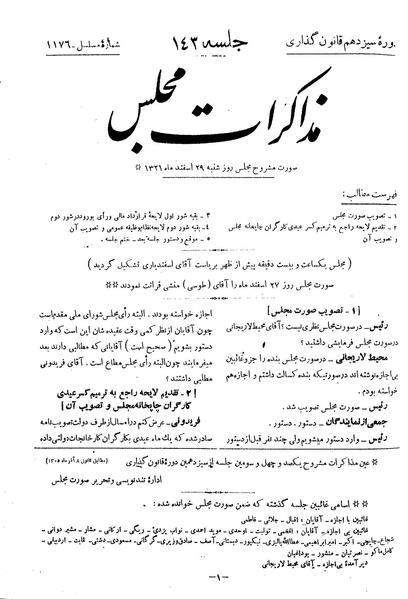 دورهٔ سیزدهم قانون گذاری
جلسه ۱۴۳
شمارهٔ مسلسل - ۱۱۷۶
مذاکرات مجلس
صورت مشروح مجلس روز شنبه ۲۹ اسفند ماه ۱۳۲۱ *
فهرست مطالب:
۱ - تصویب صورت مجلس
۲ - تقدیم لایحه راجع به ترمیم کسر عیدی کارگران چاپخانه مجلس
و تصویب آن
۳ - بقیه شور اول لایحهٔ قرارداد مالی ورأی بورود در شور دوم
۴ - بقیه شور دوم لایحه نظام وظیفه عمومی و تصویب آن
۵ - موقع و دستور جلسه بعد - ختم جلسه.
( مجلس یکساعت و بیست دقیقه پیش از ظهر بریاست آقای اسفندیاری تشکیل گردید )
صورت مجلس روز ۲۷ اسفند ماه را آقای (طوسی) منشی قرائت نمودند **
[ ۱ - تصویب صورت مجلس ]
رئیس - در صورت مجلس نظری نیست؟ آقای محیط لاریجانی
در صورت مجلس فرمایشی داشتید؟
محیط لاریجانی - در صورت مجلس بنده را جزو غائبین
بی اجازه نوشته اند در صورتیکه بنده کسالت داشتم و اجازه هم
خواسته بودم.
رئیس - صورت مجلس تصویب شد.
جمعی از نمایندگان - دستور. دستور.
رئیس - وارد دستور میشویم ولی چند نفر قبل از دستور
اجازه خواسته بودند. البته رأی مجلس شورای ملی مقدم است
چون آقایان از نظر کمی وقت عقیده شان این است که وارد
دستور بشویم (صحیح است) آقایانی که مطالبی دارند بعد
میفرمایند چون البته رأی مجلس مطاع است. آقای فریدونی
مطلبی داشتند؟
[ ۲ - تقدیم لایحه راجع به ترمیم کسر عیدی
کارگران چاپخانه مجلس و تصویب آن ]
فریدونی - عرض کنم در امسال از طرف دولت تصویب نامه
صادر شده که یك ماه عیدی بکارگران کارخانجات دولتی داده
* عین مذاکرات مشروح یکصد و چهل و سومین جلسه از سیزدهمین دورهٔ قانون گذاری
(مطابق قانون ۸ آذر ماه ۱۳۰۵)
ادارهٔ تندنویسی و تحریر صورت مجلس
** اسامی غائبین جلسه گذشته که ضمن صورت مجلس خوانده شده:
غائبین با اجازه - آقایان: اقبال - جلائی - فاطمی
دیر آمده بی اجازه - آقای محیط لاریجانی
-۱-